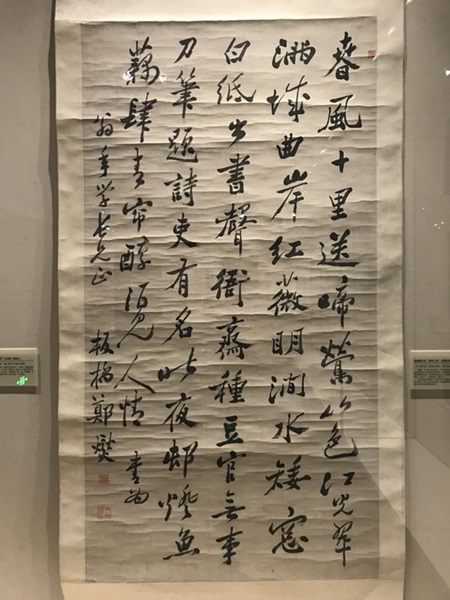 春風十里送啼鶯山色江光翠
滿城曲岸紅薇明澗水矮窗
白紙出書聲衙齋種豆官無事
刀筆題詩吏有名昨夜邨燈魚
藕肆青帘醇酒見人情 書為
翁年學長兄正 板橋鄭燮